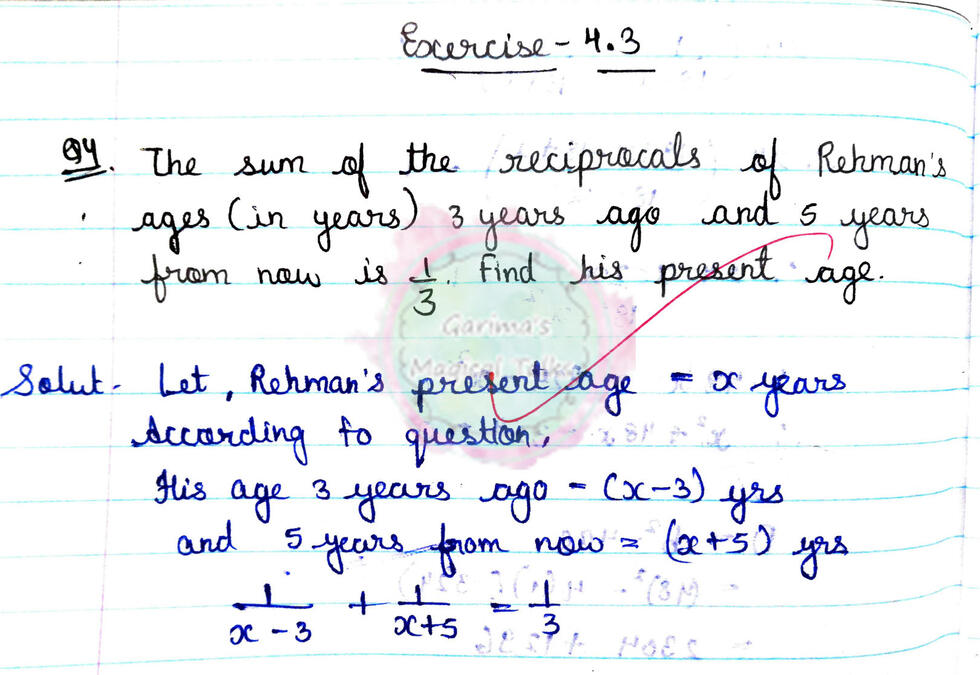 Exercise - 4.3
Q4. The sum of the reciprocals of Rehman's
ages (in years) 3 years ago and 5 years
from now is 1/3. Find his present age.
Garima's
Magical
Solut- Let, Rehman's present age = x years
According to question,
His age 3 years ago = (x-3) yrs
and 5 years from now = (x+5) yrs
1/(x-3) + 1/(x+5) = 1/3